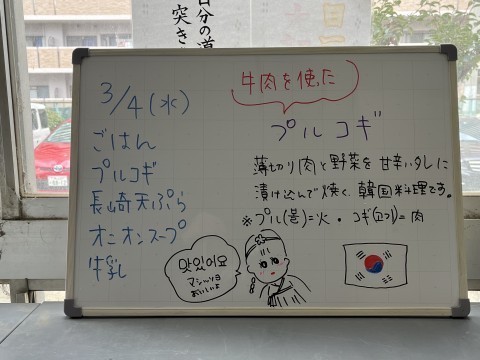 自分の道
突き
3/4(水)
ごはん
プルコギ
長崎天ぷら
オニオンスープ
牛乳
牛肉を使った
プルコギ
薄切り肉と野菜を甘辛いタレに
漬け込んで焼く、韓国料理です。
※プル(불)=火・コギ(고기)=肉
맛있어요
マシッソヨ
おいしいよ